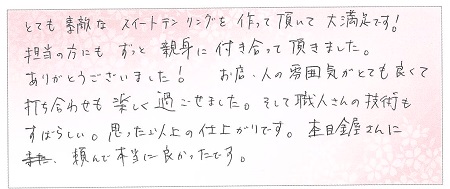 とても素敵な スイートテンリングを 作って頂いて 大満足です!
担当の方にも ずっと 親身に 付き合って 頂きました。
ありがとうございました! お店、人の雰囲気がとても良くて
打ち合わせも 楽しく 過ごせました。そして職人さんの技術も
すばらしい。思った以上の仕上がりです。杢目金屋さんに
頼んで本当に良かったです。